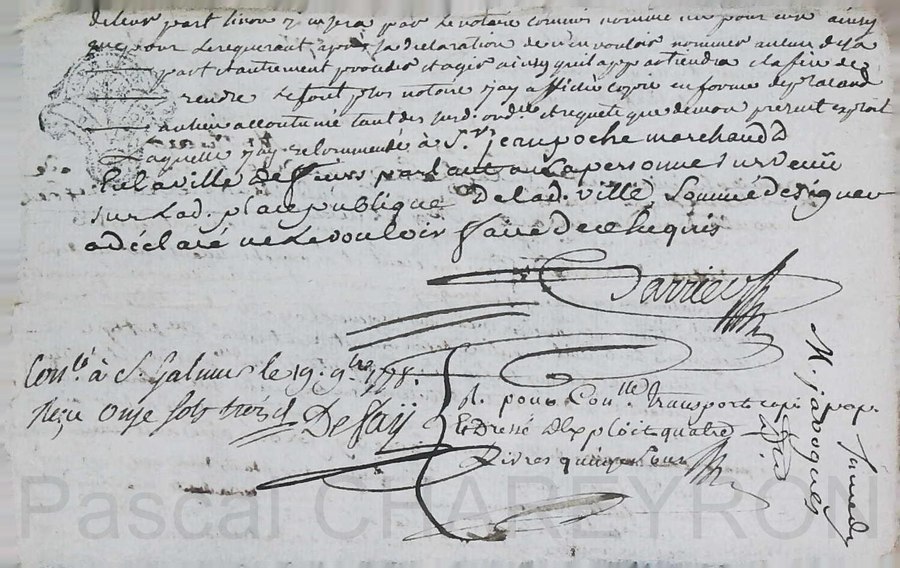 de leur part sinon y en sera par le notaire commis nommé un pour eux ainsy
que pour le requerant apres sa declaration de n'en vouloir nommer aucun de sa
part et autrement proceder et agir ainsy qu'il appartiendra et afin de
rendre le tout plus notoire j'ay affiché copie en forme de placard
au lieu accoutumé tant des susd. ord.ce et requete que de mon present exploit
laquelle j'ay recommendé à Sr. Jean poche marchand
de la ville de feurs parlant a sa personne survenu
sur lad. place publique de lad. ville, sommé de signer
a déclaré ne le vouloir faire de ce requis
Con.lé à S. Galmier le 19. 9bre 1778.
Reçu onze sols trois d
Defay
d. pour Con.lle transport copie pap.
et Dressé d'exploit quatre
Livres quinze sous
M. jarroques